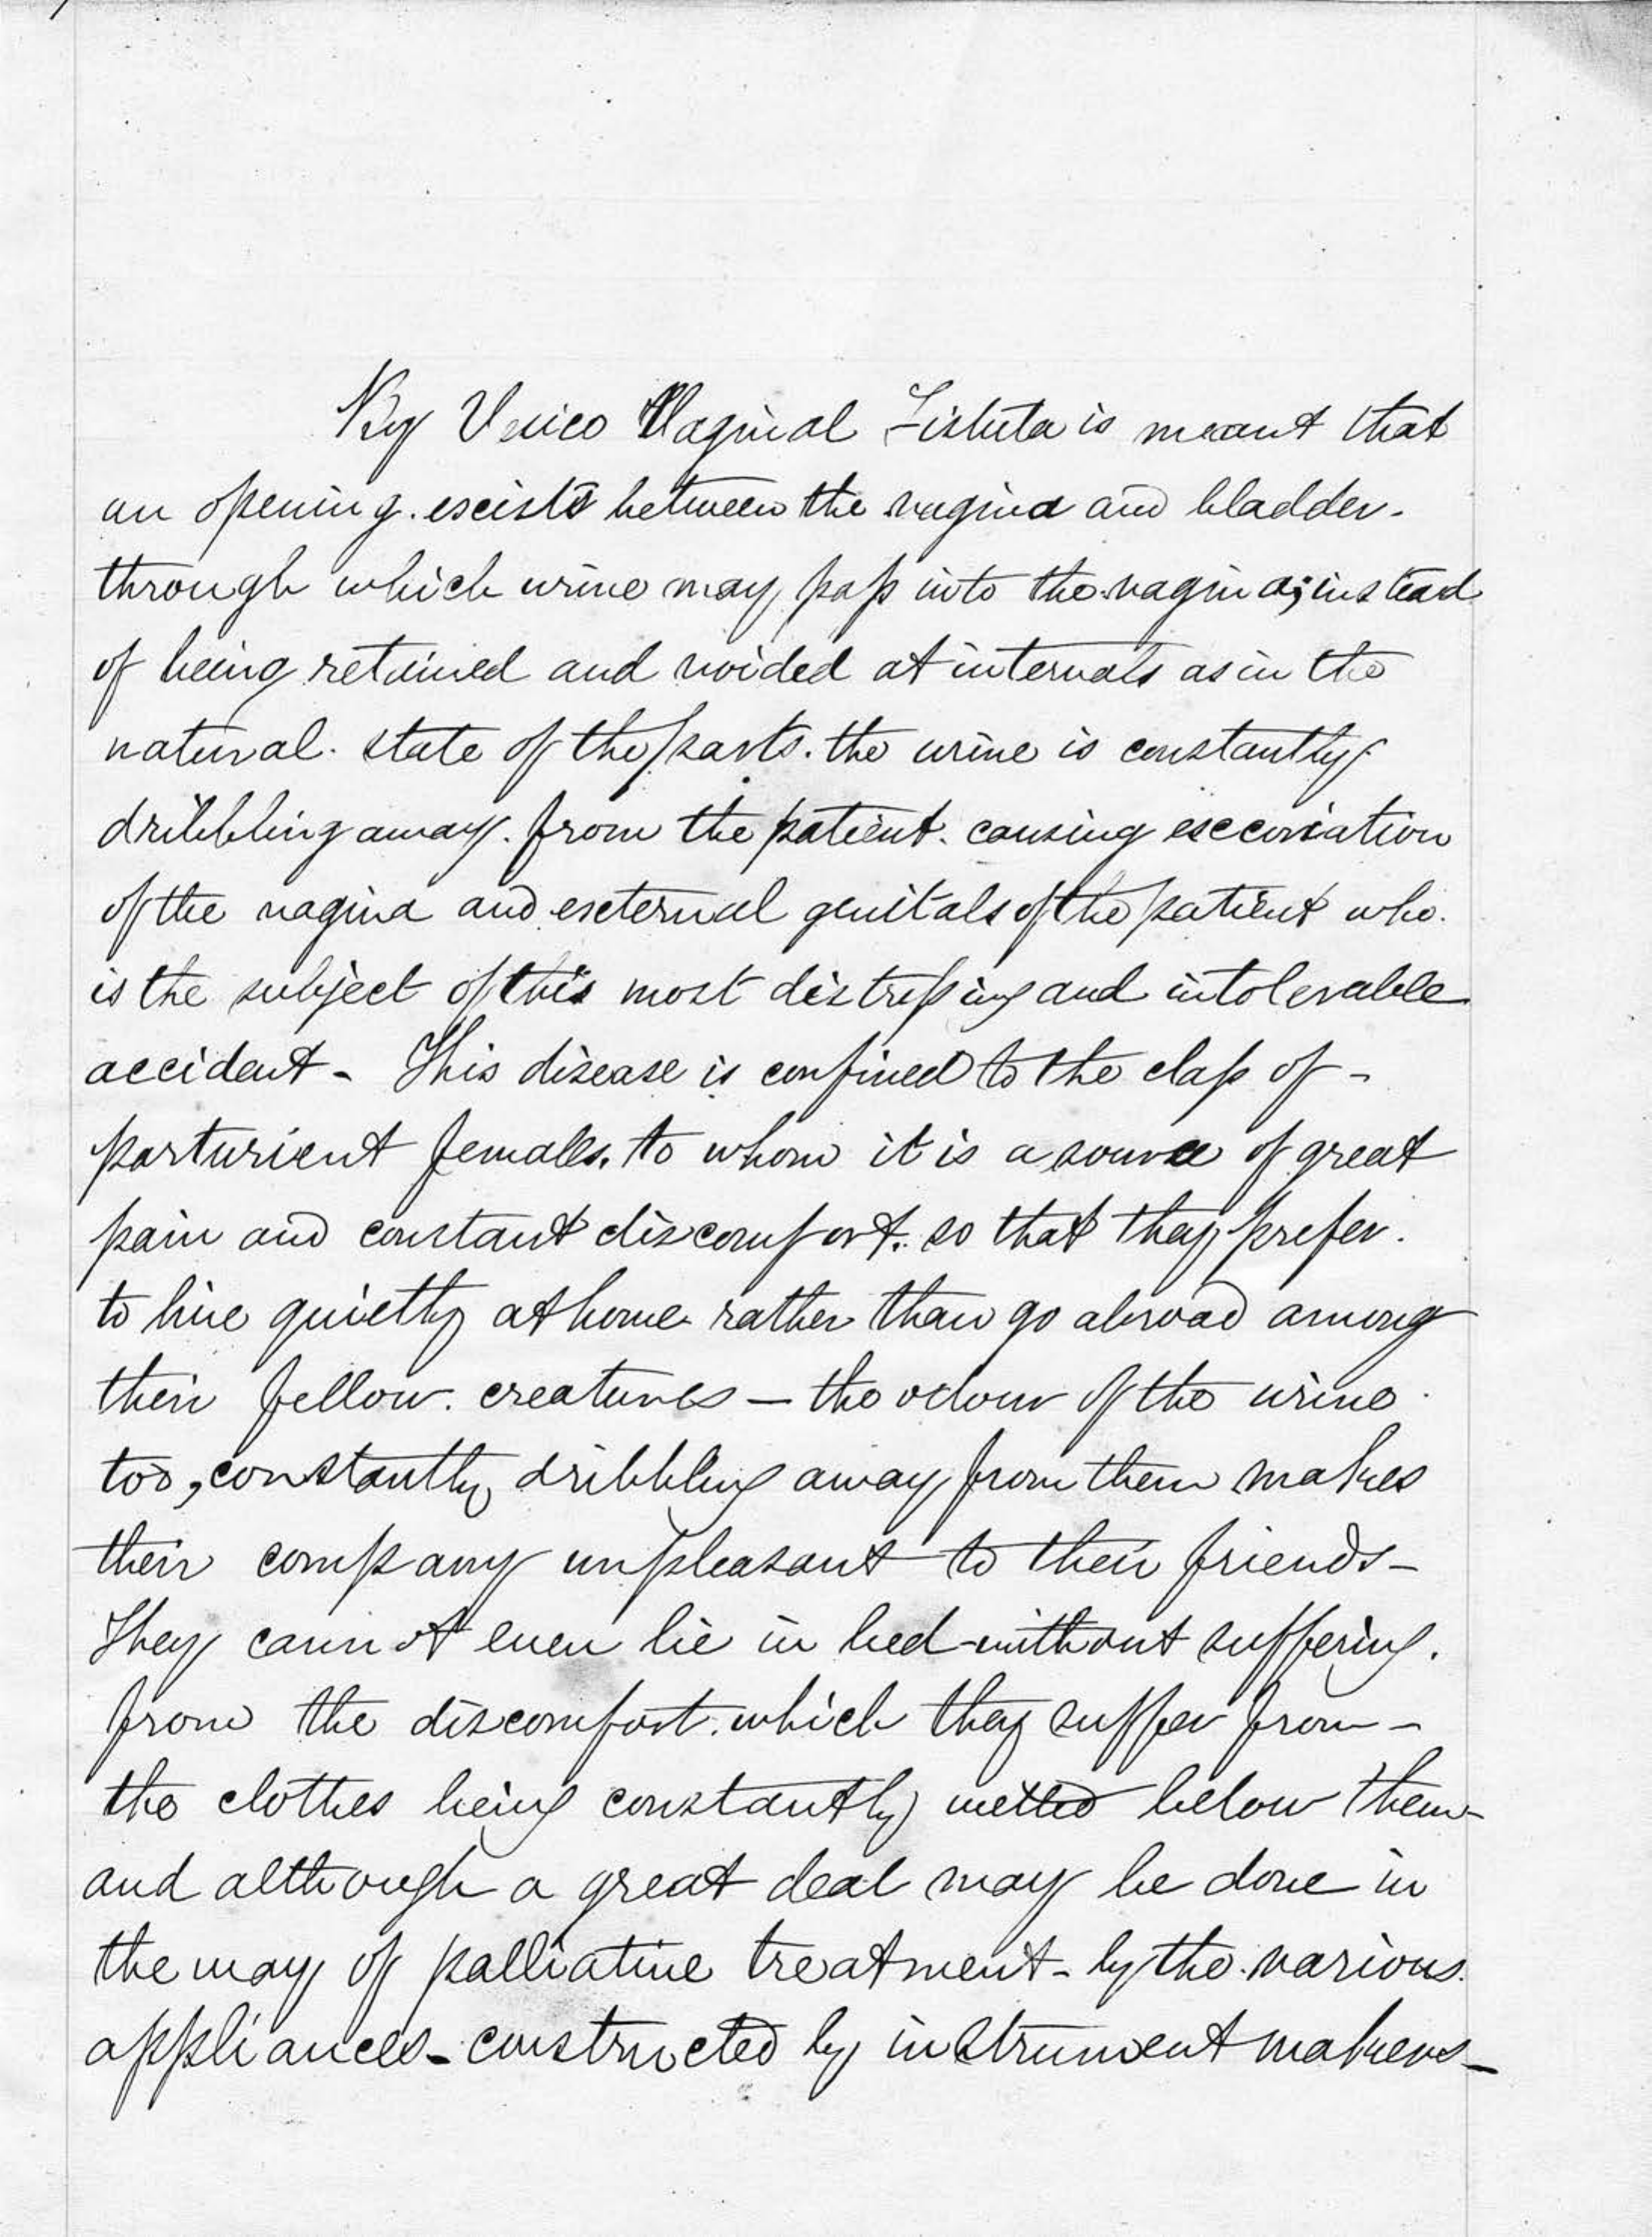 By Vesico Vaginal Fistula is meant that
an opening. exists between the vagina and bladder.
through which urine may pass into the vagina; instead
of being retained and voided at intervals as in the
natural. state of the parts. the urine is constantly
dribbling away. from the patient. causing excoriation
of the vagina and external genitals of the patient who.
is the subject of this most distressing and intolerable
accident - This disease is confined to the class of -
parturient females. to whom it is a source of great
pain and constant discomfort. so that they prefer.
to live quietly at home rather than go abroad among
their fellow. creatures — the odour of the urine
too, constantly dribbling away from them makes
their company unpleasant to their friends -
They cannot even lie in bed without suffering.
from the discomfort. which they suffer from -
the clothes being constantly wetted below them -
and although a great deal may be done in
the way of palliative treatment - by the various.
appliances - constructed by instrument makers -